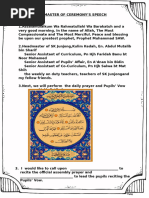 MASTER OF CEREMONY'S SPEECH
1.Assalamualaikum Wa Rahmatullahi Wa Barakatuh and a
very good morning. In the name of Allah, The Most
Compassionate and The Most Merciful. Peace and blessing
be upon our greatest prophet, Prophet Muhammad SAW.
2.Headmaster of SK Junjong,Kulim Kedah, En. Abdul Mokalib
bin Sharif
Senior Assistant of Curriculum, Pn Hjh Faridah Banu Bt
Noor Mohamed
Senior Assistant of Pupils' Affair, En A'Dnan bin Bidin
Senior Assistant of Co-Curriculum, Pn Hjh Salwa Bt Mat
Shah
the weekly on duty teachers, teachers of SK Junjongand
my fellow friends.
3.Next, we will perform the daily prayer and Pupils' Vow.
3. I would like to call upon to
recite the official assembly prayer and
to lead the pupils reciting the
Pupils' Vow.